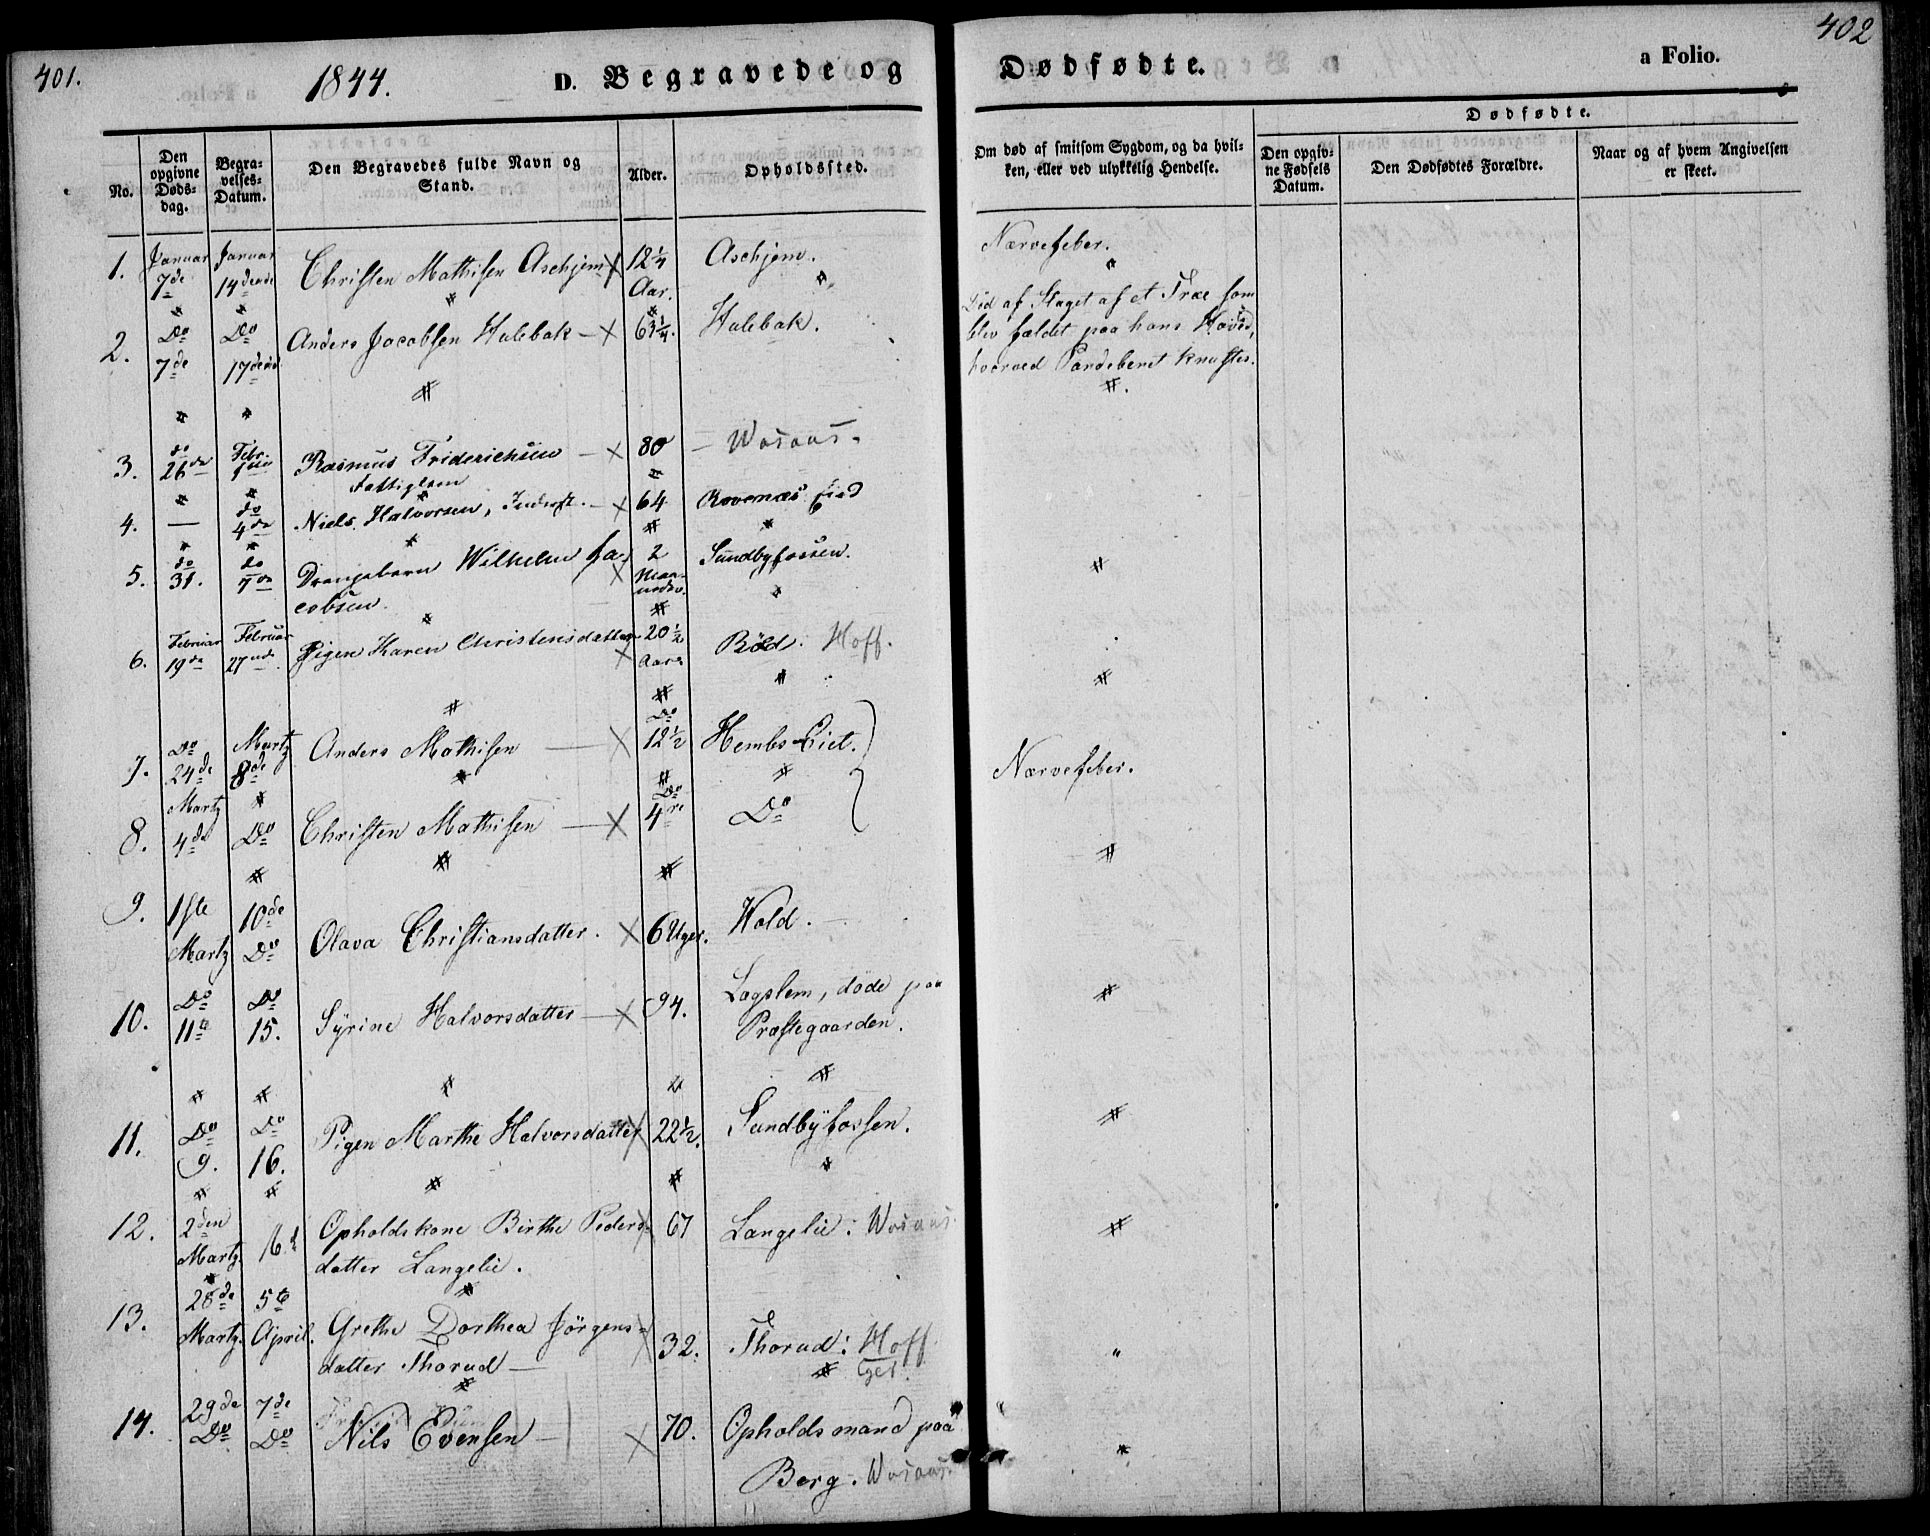 401.
1844.
D. Begravede og
Dødfødte.
a Folio.
402
No.
Den opgivne Døds-dag.
Begra-velses-Datum.
Den Begravedes fulde Navn og Stand.
Alder.
Opholdssted.
Om død af smitsom Sygdom, og da hvil-
ken, eller ved ulykkelig Hendelse.
Dødfødte.
Den opgiv-ne Fødsels Datum.
Den Dødfødtes Forældre.
Naar og af hvem Angivelsen er skeet.
1. Januar 7de Januar 14dende Christen Mathisen Aschjem 12 1/4 Aar. Aschjem. Nærvefeber.
2. Do 7de Do 17dende Anders Jacobsen Halebak 63 1/4. Halebak.
Død af Slaget af et Træ som
blev fældet paa hans Hoved,
hvorved Pandebenet knustes.
3. do 26de Febr. Rasmus Friderichsen 80 Wosaas.
Fattiglem
4. — do 4de Niels Halvorsen, Inderst. 64 Rovenæs
5. do 31. do 7de Drængebarn Wilhelm Ja-
cobsen. 2 Maaneder. Sundbyfossen.
6. Februar 19de Februar 27nde Pigen Karen Christensdatter 20 1/2 Aar Böd. Hoff.
7. Do 24de Martz 8de Anders Mathisen Do 12 1/2 Hembs Eiet. Nærvefeber.
8. Martz 4de Do Christen Mathisen Do 4re Do
9. 1ste Martz 10de Do Olava Christiansdatter. 6 Uger. Wold.
10. Do 11te Do 15. Syrine Halvorsdatter 94. Lægslem, döde paa
Præstegaarden.
11. Do 9. Do 16. Pigen Marthe Halvorsdatter 22 1/2. Sundbyfossen.
12. 2den Martz. 16d Opholdskone Birthe Peders-
datter Langelie. 67 Langelie: Wosaas.
13. 28de Martz. 5te April. Grethe Dorthea Jörgens-
datter Thorud 32. Thorud: Hoff
14. 29de Do 7de Do Nils Evensen 70. Opholdsmand paa
Berg. Wosaas.